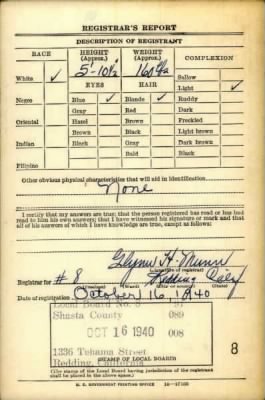 REGISTRAR'S REPORT
DESCRIPTION OF REGISTRANT
RACE HEIGHT (Approx.) WEIGHT (Approx.) COMPLEXION
White ✓ 5-10½ Sallow
EYES HAIR Light ✓
Negro Blue ✓ Blonde ✓ Ruddy
Gray Red Dark
Oriental Hazel Brown Freckled
Brown Black Light brown
Indian Black Gray Dark brown
Bald Black
Filipino
Other obvious physical characteristics that will aid in identification
None
I certify that my answers are true; that the person registered has read or has had
read to him his own answers; that I have witnessed his signature or mark and that
all of his answers of which I have knowledge are true, except as follows:
Glynn H. Munn
(Signature of registrar)
Registrar for #8 Redding Calif
Date of registration October 16, 1940
Local Board No.
Shasta County 089
OCT 16 1940 008
1336 Tehama Street
Redding, California
8
(STAMP OF LOCAL BOARD)
(The stamp of the Local Board having jurisdiction of the registrant
shall be placed in the above space.)
U. S. GOVERNMENT PRINTING OFFICE